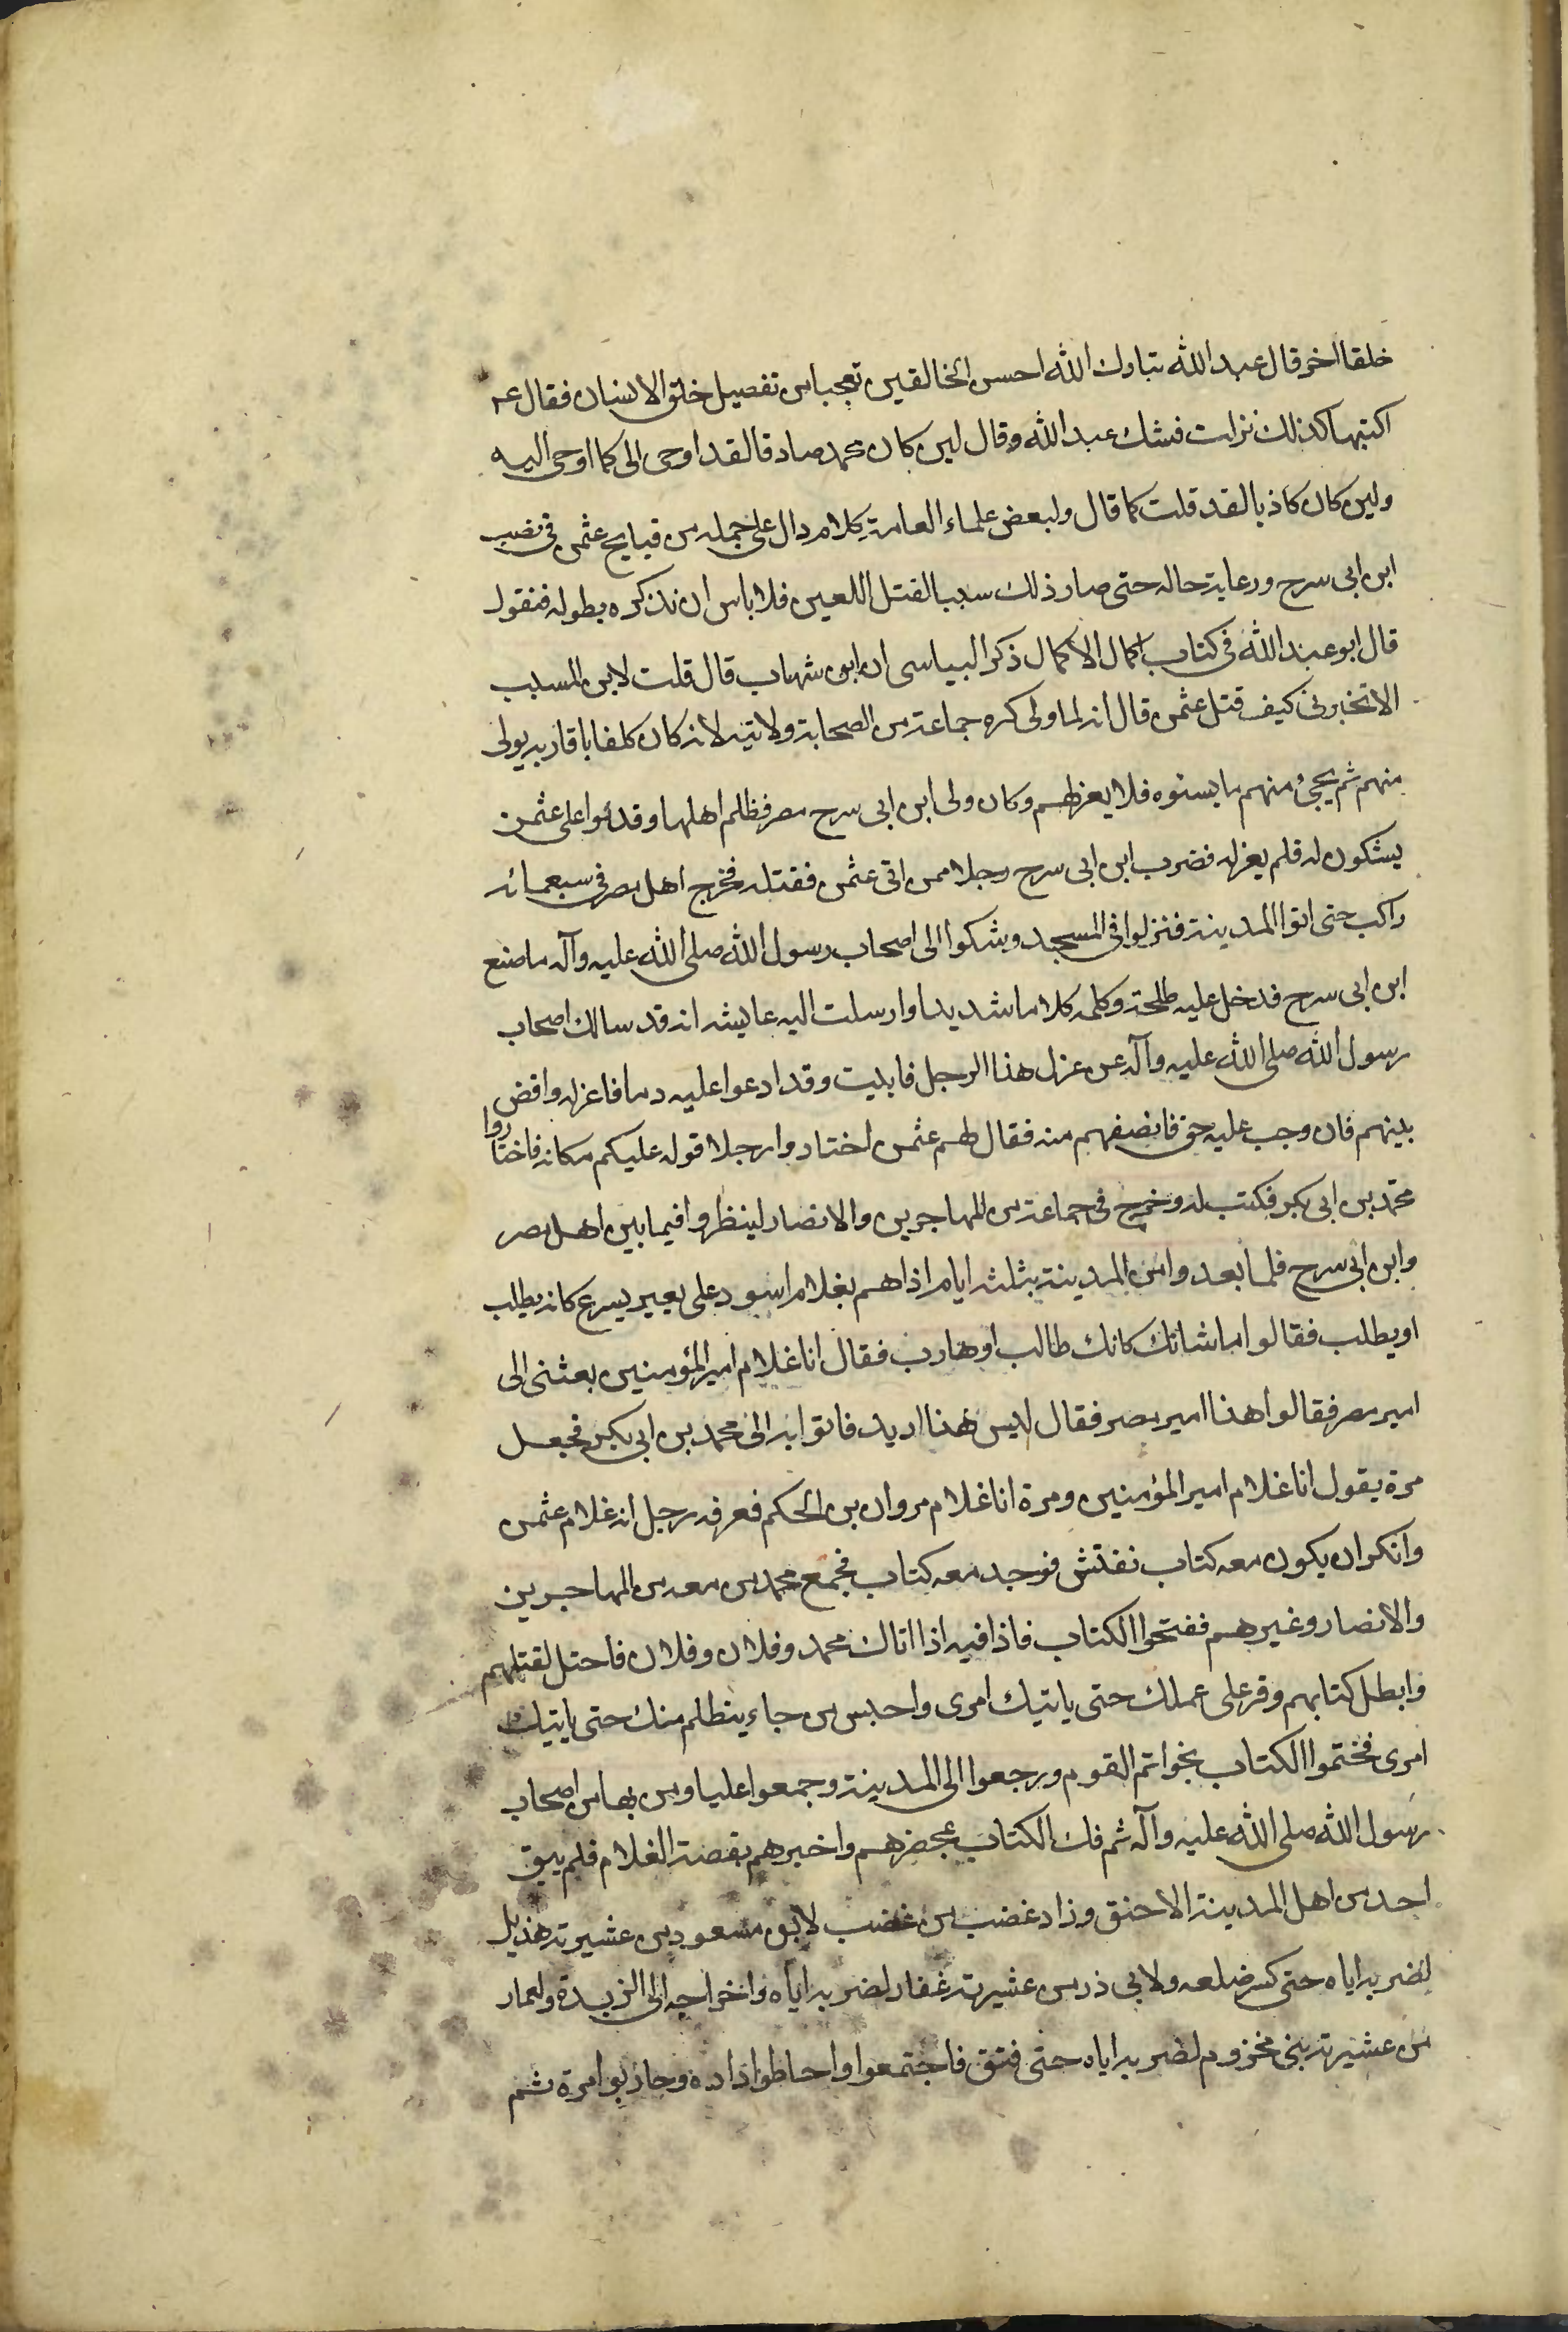 خلقا اخر قال عبد الله تبارك الله احسن الخالقين تعجبا من تفصيل خلق الانسان فقال عم
اكتبها كذلك نزلت فشك عبد الله وقال لين كان محمد صادقا لقد اوحى الى كما اوحى اليه
ولين كان كاذبا لقد قلت كما قال ولبعض علماء العامة كلام دال على جملة من قبايح عثمن فى نصب
ابن ابى سرح ورعاية حاله حتى صار ذلك سببا لقتل اللعين فلا باس ان نذكره بطوله فنقول
قال ابو عبد الله فى كتاب اكمال الاكمال ذكر البياسى ان ابن شهاب قال قلت لابن المسيب
الا تخبرنى كيف قتل عثمن قال انه لما ولى كره جماعة من الصحابة ولايته لانه كان كلفا باقاربه يولى
منهم ثم يجئ منهم ما يسئوه فلا يعزلهم وكان ولى ابن ابى سرح مصر فظلم اهلها وقدموا على عثمن
يشكون له فلم يعزله فضرب ابن ابى سرح رجلا ممن اتى عثمن فقتله فخرج اهل مصر فى سبعمائه
راكب حتى اتوا المدينة فنزلوا فى المسجد وشكوا الى اصحاب رسول الله صلى الله عليه وآله ما صنع
ابن ابى سرح فدخل عليه طلحة وكلمه كلاما شديدا وارسلت اليه عايشه انه قد سالك اصحاب
رسول الله صلى الله عليه وآله عن عزل هذا الرجل فابيت وقد ادعوا عليه دما فاعزله واقض
بينهم فان وجب عليه حق فانصفهم منه فقال لهم عثمن اختاروا رجلا اوله عليكم مكانه فاختاروا
محمد بن ابى بكر فكتب له وخرج فى جماعة من المهاجرين والانصار لينظروا فيما بين اهل مصر
وابن ابى سرح فلما بعدوا من المدينة بثلثة ايام اذا هم بغلام اسود على بعير يسرع كانه يطلب
او يطلب فقالوا ما شانك كانك طالب او هارب فقال انا غلام امير المؤمنين بعثنى الى
امير مصر فقالوا هذا امير مصر فقال ليس هذا اريد فاتوا به الى محمد بن ابى بكر فجعل
مرة يقول انا غلام امير المؤمنين ومرة انا غلام مروان بن الحكم فعرفه رجل انه غلام عثمن
وانكر ان يكون معه كتاب نفتش فوجد معه كتاب فجمع محمد من معه من المهاجرين
والانصار وغيرهم ففتحوا الكتاب فاذا فيه اذا اتاك محمد وفلان وفلان فاحتل لقتلهم
وابطل كتابهم وقر على عملك حتى ياتيك امرى واحبس من جاء يتظلم منك حتى ياتيك
امرى فختموا الكتاب بخواتم القوم ورجعوا الى المدينة وجمعوا عليا ومن بها من اصحاب
رسول الله صلى الله عليه وآله ثم فك الكتاب بمحضرهم واخبرهم بقصة الغلام فلم يبق
احد من اهل المدينة الا حنق وزاد غضب من غضب لابن مسعود من عشيرته هذيل
لضربه اياه حتى كسر ضلعه ولابى ذر من عشيرته غفار لضربه اياه واخراجه الى الربذة ولعمار
من عشيرته بنى مخزوم لضربه اياه حتى فتق فاجتمعوا واحاطوا داره وحاربوا مرة ثم